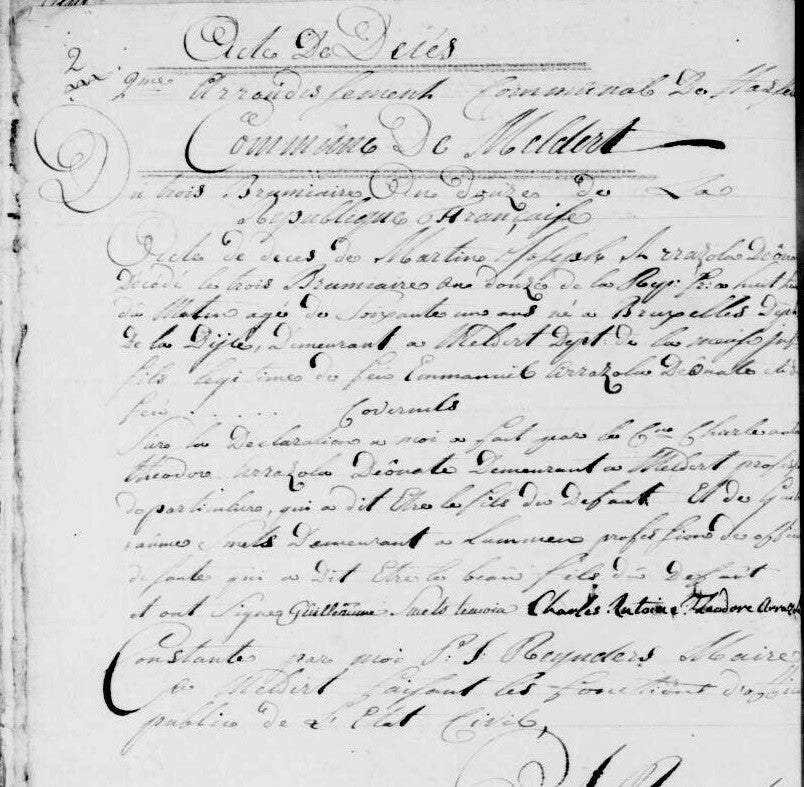 Acte De Decés
2
2me Arrondissement Communal De Hasse
Commune De Meldert
Du trois Brumiaire An Douze de La
Republique Française
Acte de deces de Martin Joseph Arrazola Deônate
Décédé le trois Brumiaire an douze de la Rep: fr: a huit
du Matin agé de Soixante un ans né a Bruxelles Dept
de la Dijle, Demeurant a Meldert Dept: de la meuse inf
fils legitime de feu Emmanuel Arrazola Deônate et
feu . . . . . . Coveruls
Sur la Declaration a moi a fait par le Cen Charle
theodore Arrazola Deônate Demeurant a Meldert profess
de particulier, qui a dit Etre le fils du Defunt Et de Guil
laûme Smets Demeurant a Lummen profession de offi
de sante qui a Dit Etre le beau fils du Defunt
et ont Signé Guilleaume Smets temoin Charles Antoine Theodore Arraz
Constante par moi P. J. Reynders Maire
de Meldert faisant les fonctions d'offi
public de L'Etat Civil,